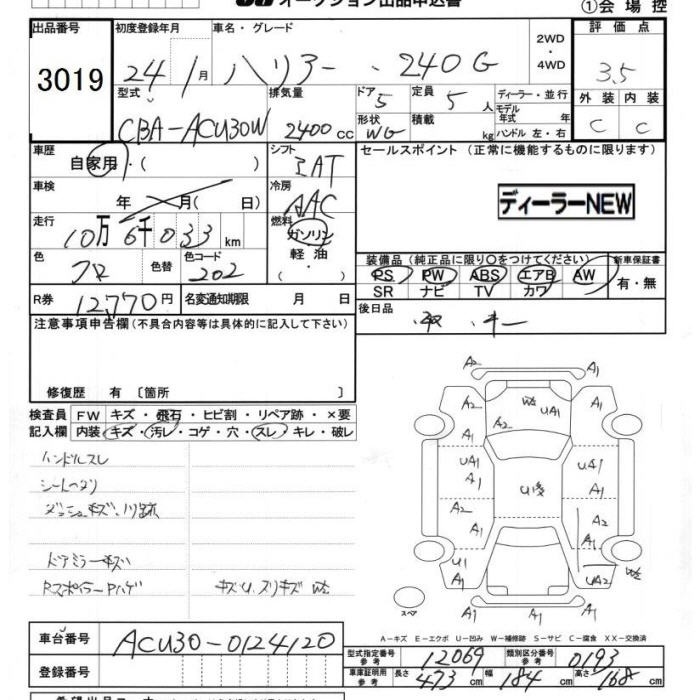 オークション出品申込書
①会場控
出品番号 初度登録年月 車名・グレード 2WD・4WD 評価点
3019 24年 1月 ハリアー 240G 3.5
型式 排気量 ドア 定員 ディーラー・並行 外装 内装
CBA-ACU30W 2400cc 5 5人 モデル年式 年 C C
形状 WG 積載 kg ハンドル 左・右
車歴 自家用・( ) シフト IAT セールスポイント (正常に機能するものに限ります)
車検 年 月( 日) 冷房 AAC ディーラーNEW
走行 10万6千033km 燃料 ガソリン・軽油・( )
色 クロ 色替 色コード 202
装備品 (純正品に限り○をつけてください) 新車保証書
PS PW ABS エアB AW 有・無
SR ナビ TV カワ
R券 12,770円 名変通知期限 月 日
後日品 取 キー
注意事項申告欄(不具合内容等は具体的に記入して下さい)
修復歴 有 〔箇所 〕
検査員 FW キズ・飛石・ヒビ割・リペア跡・×要
記入欄 内装 キズ・汚レ・コゲ・穴・スレ・キレ・破レ
ハンドルスレ
ダッシュキズ、
ドアミラーキズ
Rスポイラー ハゲ
キズU、スリキズ
A2 A1
A2 UA1 A1
A2
UA1 UA1
A1 A1
A2 A1
A1 A1
U1
A1 UA2
スペア
A-キズ E-エクボ U-凹み W-補修跡 S-サビ C-腐食 XX-交換済
車台番号 ACU30-0124120
登録番号
型式指定番号 参考 12069 類別区分番号 参考 0193
車庫証明用 参考 長さ 473cm 幅 184cm 高さ 168cm